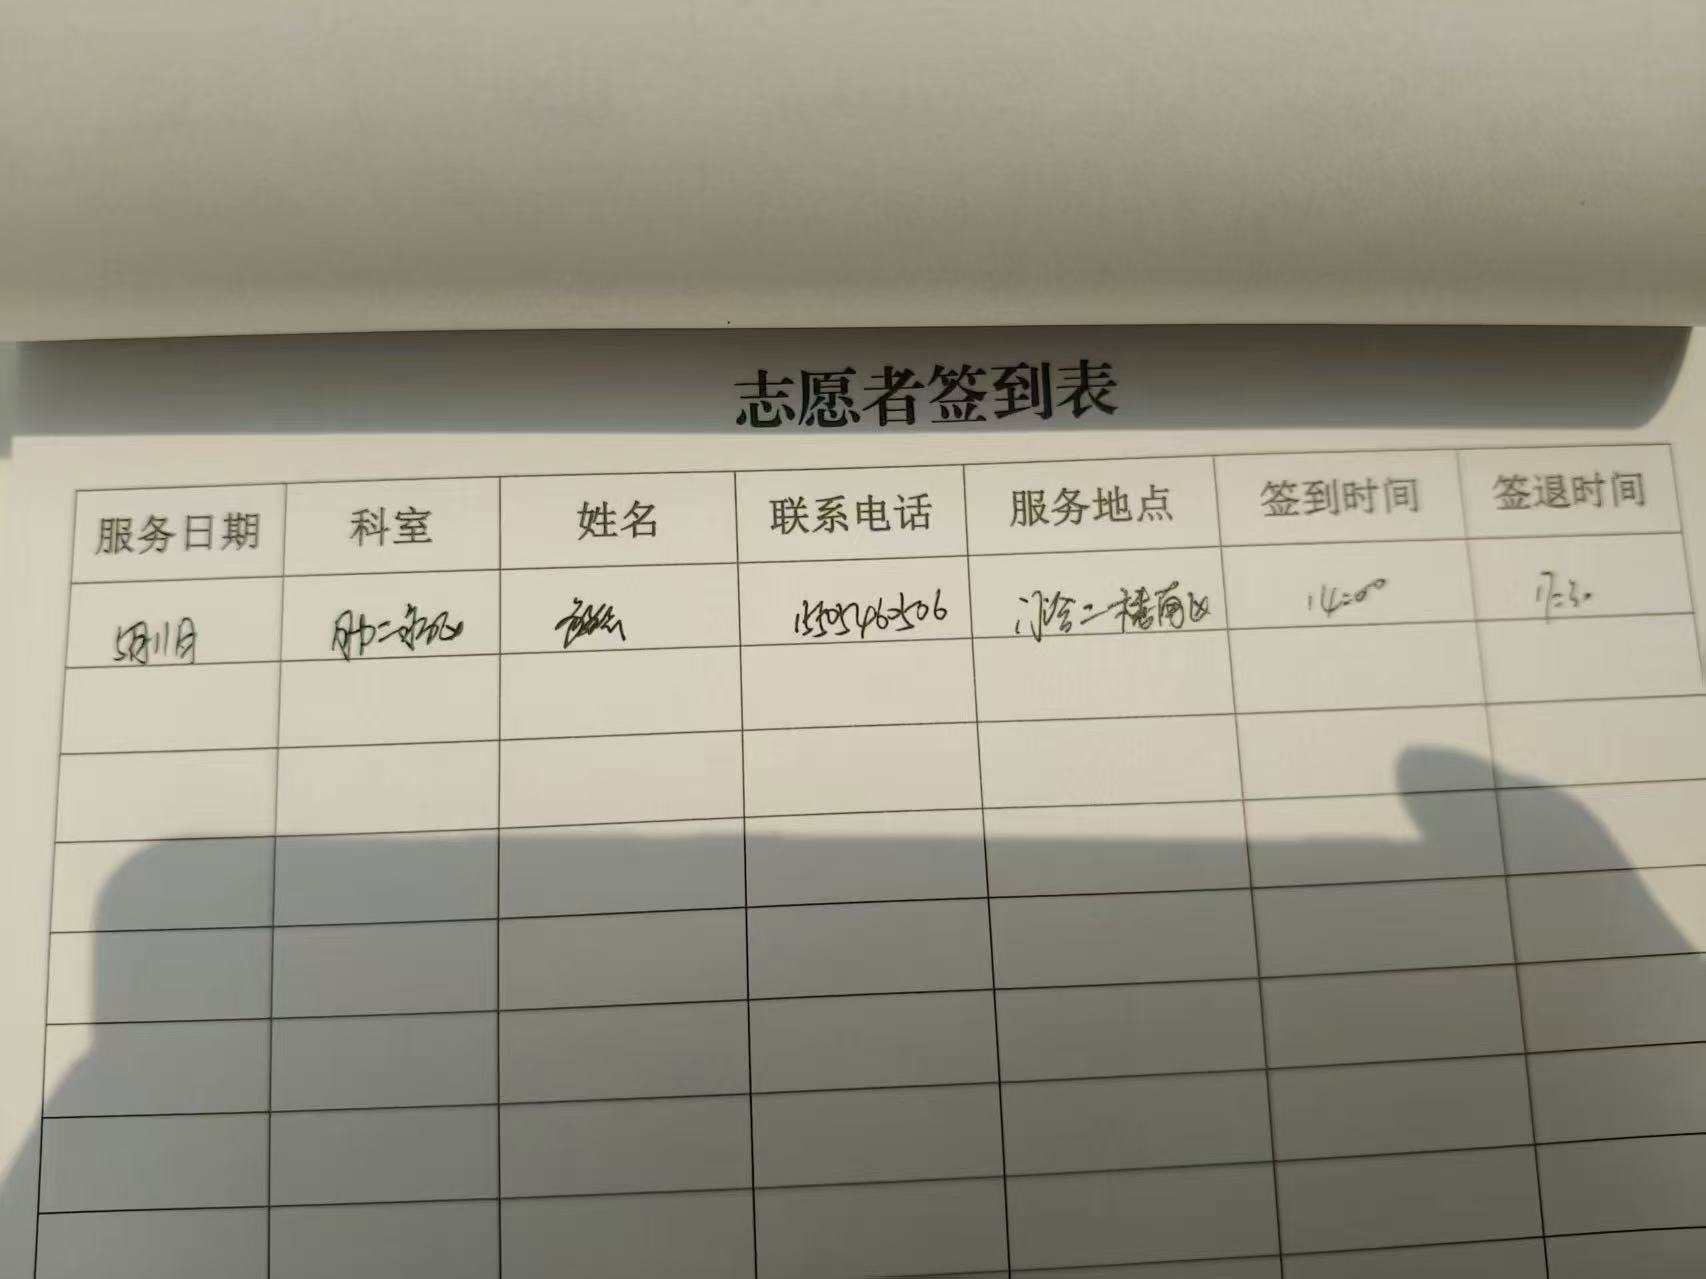 志愿者签到表
服务日期 科室 姓名 联系电话 服务地点 签到时间 签退时间
5月11日 15505460506 门诊二楼南区 14:00 17:30